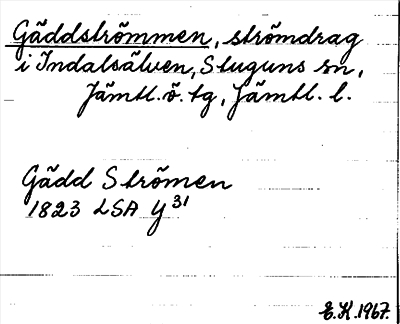 Gäddströmmen, strömdrag
i Indalsälven, Stuguns sn,
Jämtl. ö. tg, Jämtl. l.
Gädd Strömen
1823 LSA Y 31
E.K. 1967.